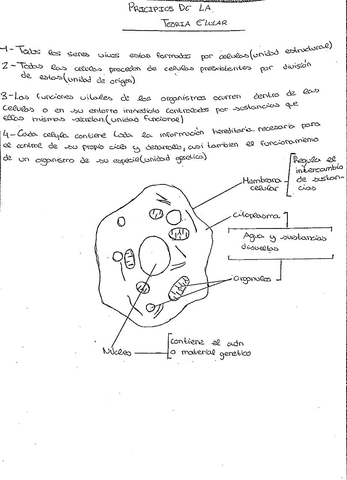 PRICIPIOS DE LA
TEORIA CLULAR
1-Todos los seres vivos estan formados por celulas(unidad estructural)
2-Todas las celulas proceden de celulas preexistentes por división
de estas(unidad de origen)
3-Las funciones vitales de los organismos ocurren dentro de las
celulas o en su entorno inmediato controladas por sustancias que
ellas mismas secretan.(unidad funcional)
4-Cada celula contiene toda la información hereditaria necesaria para
el control de su propio ciclo y desarrollo, asi tambien el funcionamiento
de un organismo de su especie(unidad genetica)
Membrana
celular
Regula el
intercambio
de sustan-
cias
citoplasma
Agua y sustancias
disueltas
organulos
Núcleo
contiene el adn
o material genetico